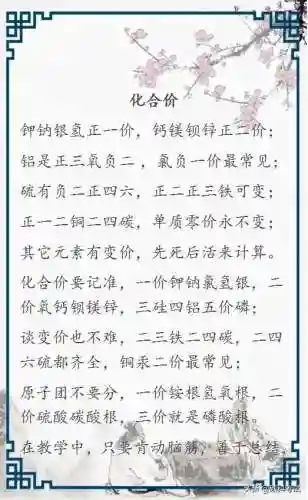 化合价
钾钠银氢正一价，钙镁钡锌正二价；
铝是正三氧负二，氯负一价最常见；
硫有负二正四六，正二正三铁可变；
正一二铜二四碳，单质零价永不变；
其它元素有变价，先死后活来计算。
化合价要记准，一价钾钠氯氢银，二
价氧钙钡镁锌，三硅四铝五价磷；
谈变价也不难，二三铁二四碳，二四
六硫都齐全，铜汞二价最常见；
原子团不要分，一价铵根氢氧根，二
价硫酸碳酸根，三价就是磷酸根。
在教学中，只要肯动脑筋，善于总结